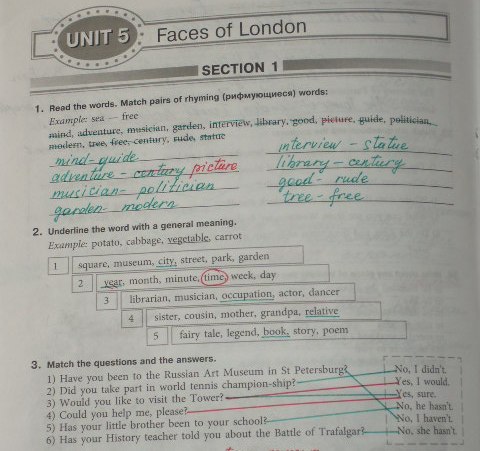 UNIT 5 Faces of London
SECTION 1
1. Read the words. Match pairs of rhyming (рифмующиеся) words:
Example: sea — free
mind, adventure, musician, garden, interview, library, good, picture, guide, politician,
modern, tree, free, century, rude, statue
mind-guide
adventure - century picture
musician - politician
garden - modern
interview - statue
library - century
good - rude
tree - free
2. Underline the word with a general meaning.
Example: potato, cabbage, vegetable, carrot
1 square, museum, city, street, park, garden
2 year, month, minute, time, week, day
3 librarian, musician, occupation, actor, dancer
4 sister, cousin, mother, grandpa, relative
5 fairy tale, legend, book, story, poem
3. Match the questions and the answers.
1) Have you been to the Russian Art Museum in St Petersburg?
2) Did you take part in world tennis champion-ship?
3) Would you like to visit the Tower?
4) Could you help me, please?
5) Has your little brother been to your school?
6) Has your History teacher told you about the Battle of Trafalgar?
No, I didn't.
Yes, I would.
Yes, sure.
No, he hasn't.
No, I haven't.
No, she hasn't.